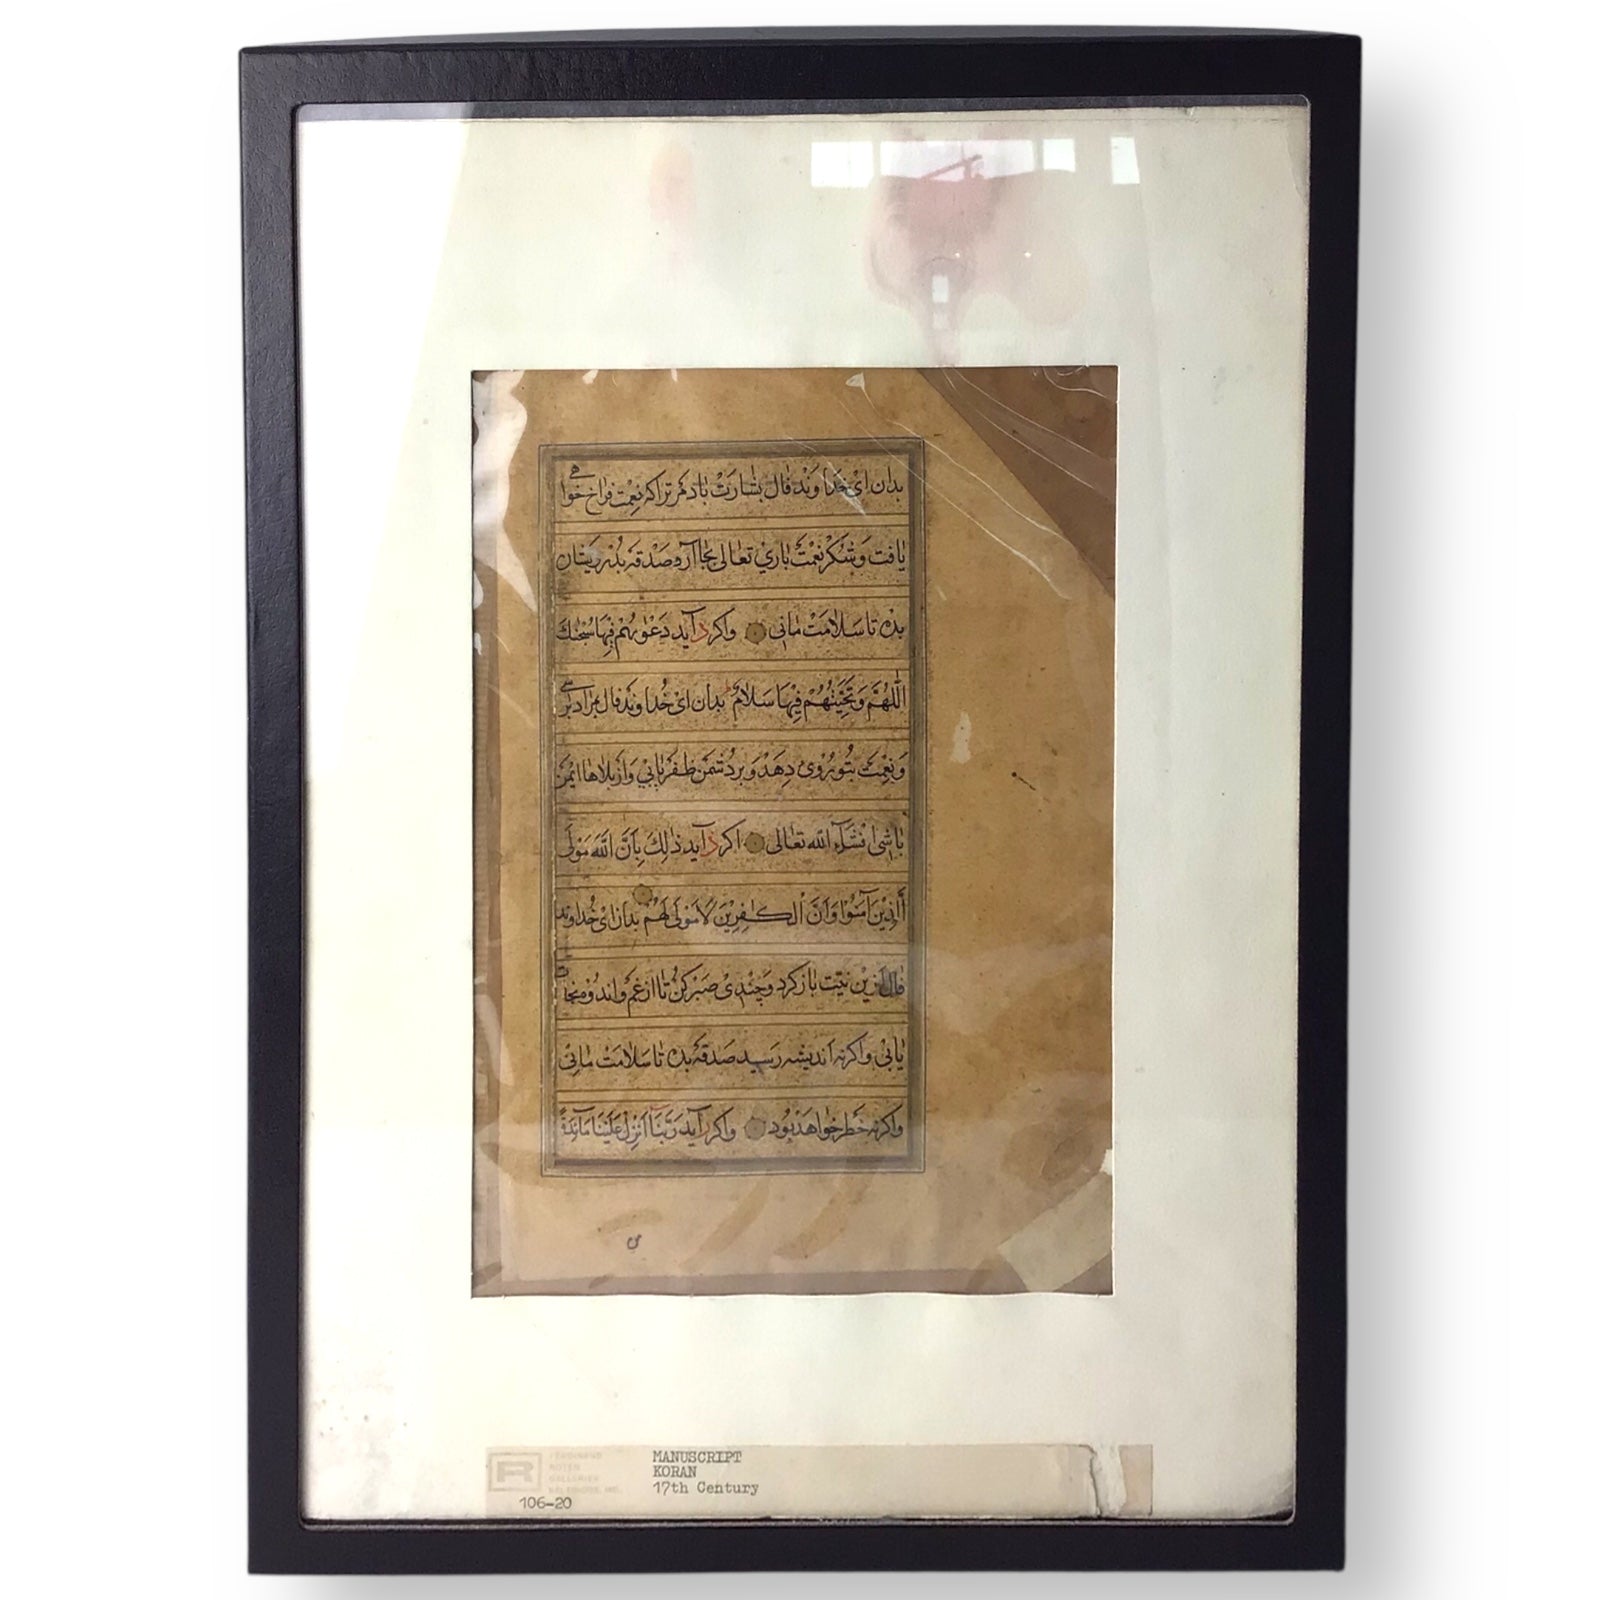 بدان ای خداوند فال بشارت باد مر ترا که نعمت فراخ خواهی
یافت و شکر نعمت باری تعالی بجا آر و صدقه بدرویشان
بده تا سلامت مانی واکر د آید دعوٰیهم فیها سبحٰنك
اللّٰهم وتحیتهم فیها سلام بدان ای خداوند فال بمراد برسی
و نعمت بتو روی دهد و بر دشمن ظفر یابی و از بلاها ایمن
باشی انشآء الله تعالی اکر د آید ذٰلك بان الله مولی
الذین آمنوا وان الکٰفرین لا مولی لهم بدان ای خداوند
فال ازین نیت باز کرد و چندی صبر کن تا از غم و اندوه نجات
یابی واکر نه اندیشه رسید صدقه بده تا سلامت مانی
واکر نه خطر خواهد بود واکر ر آید ربنا انزل علینا مآئدة
R
FERDINAND
ROTEN
GALLERIES
BALTIMORE, MD.
106-20
MANUSCRIPT
KORAN
17th Century